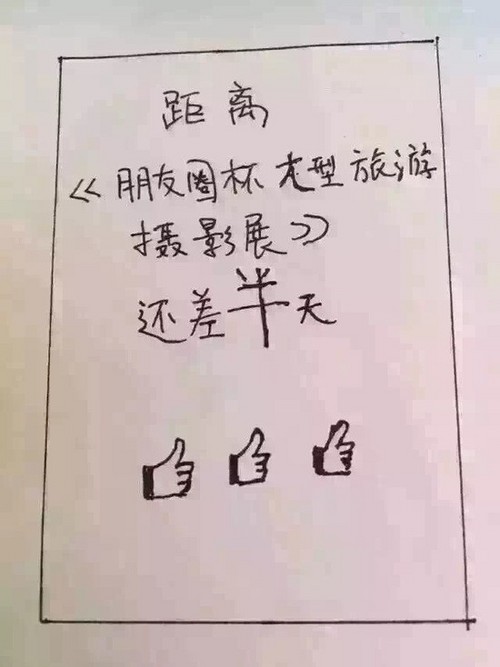 距离
《朋友圈杯大型旅游
摄影展》
还差半天